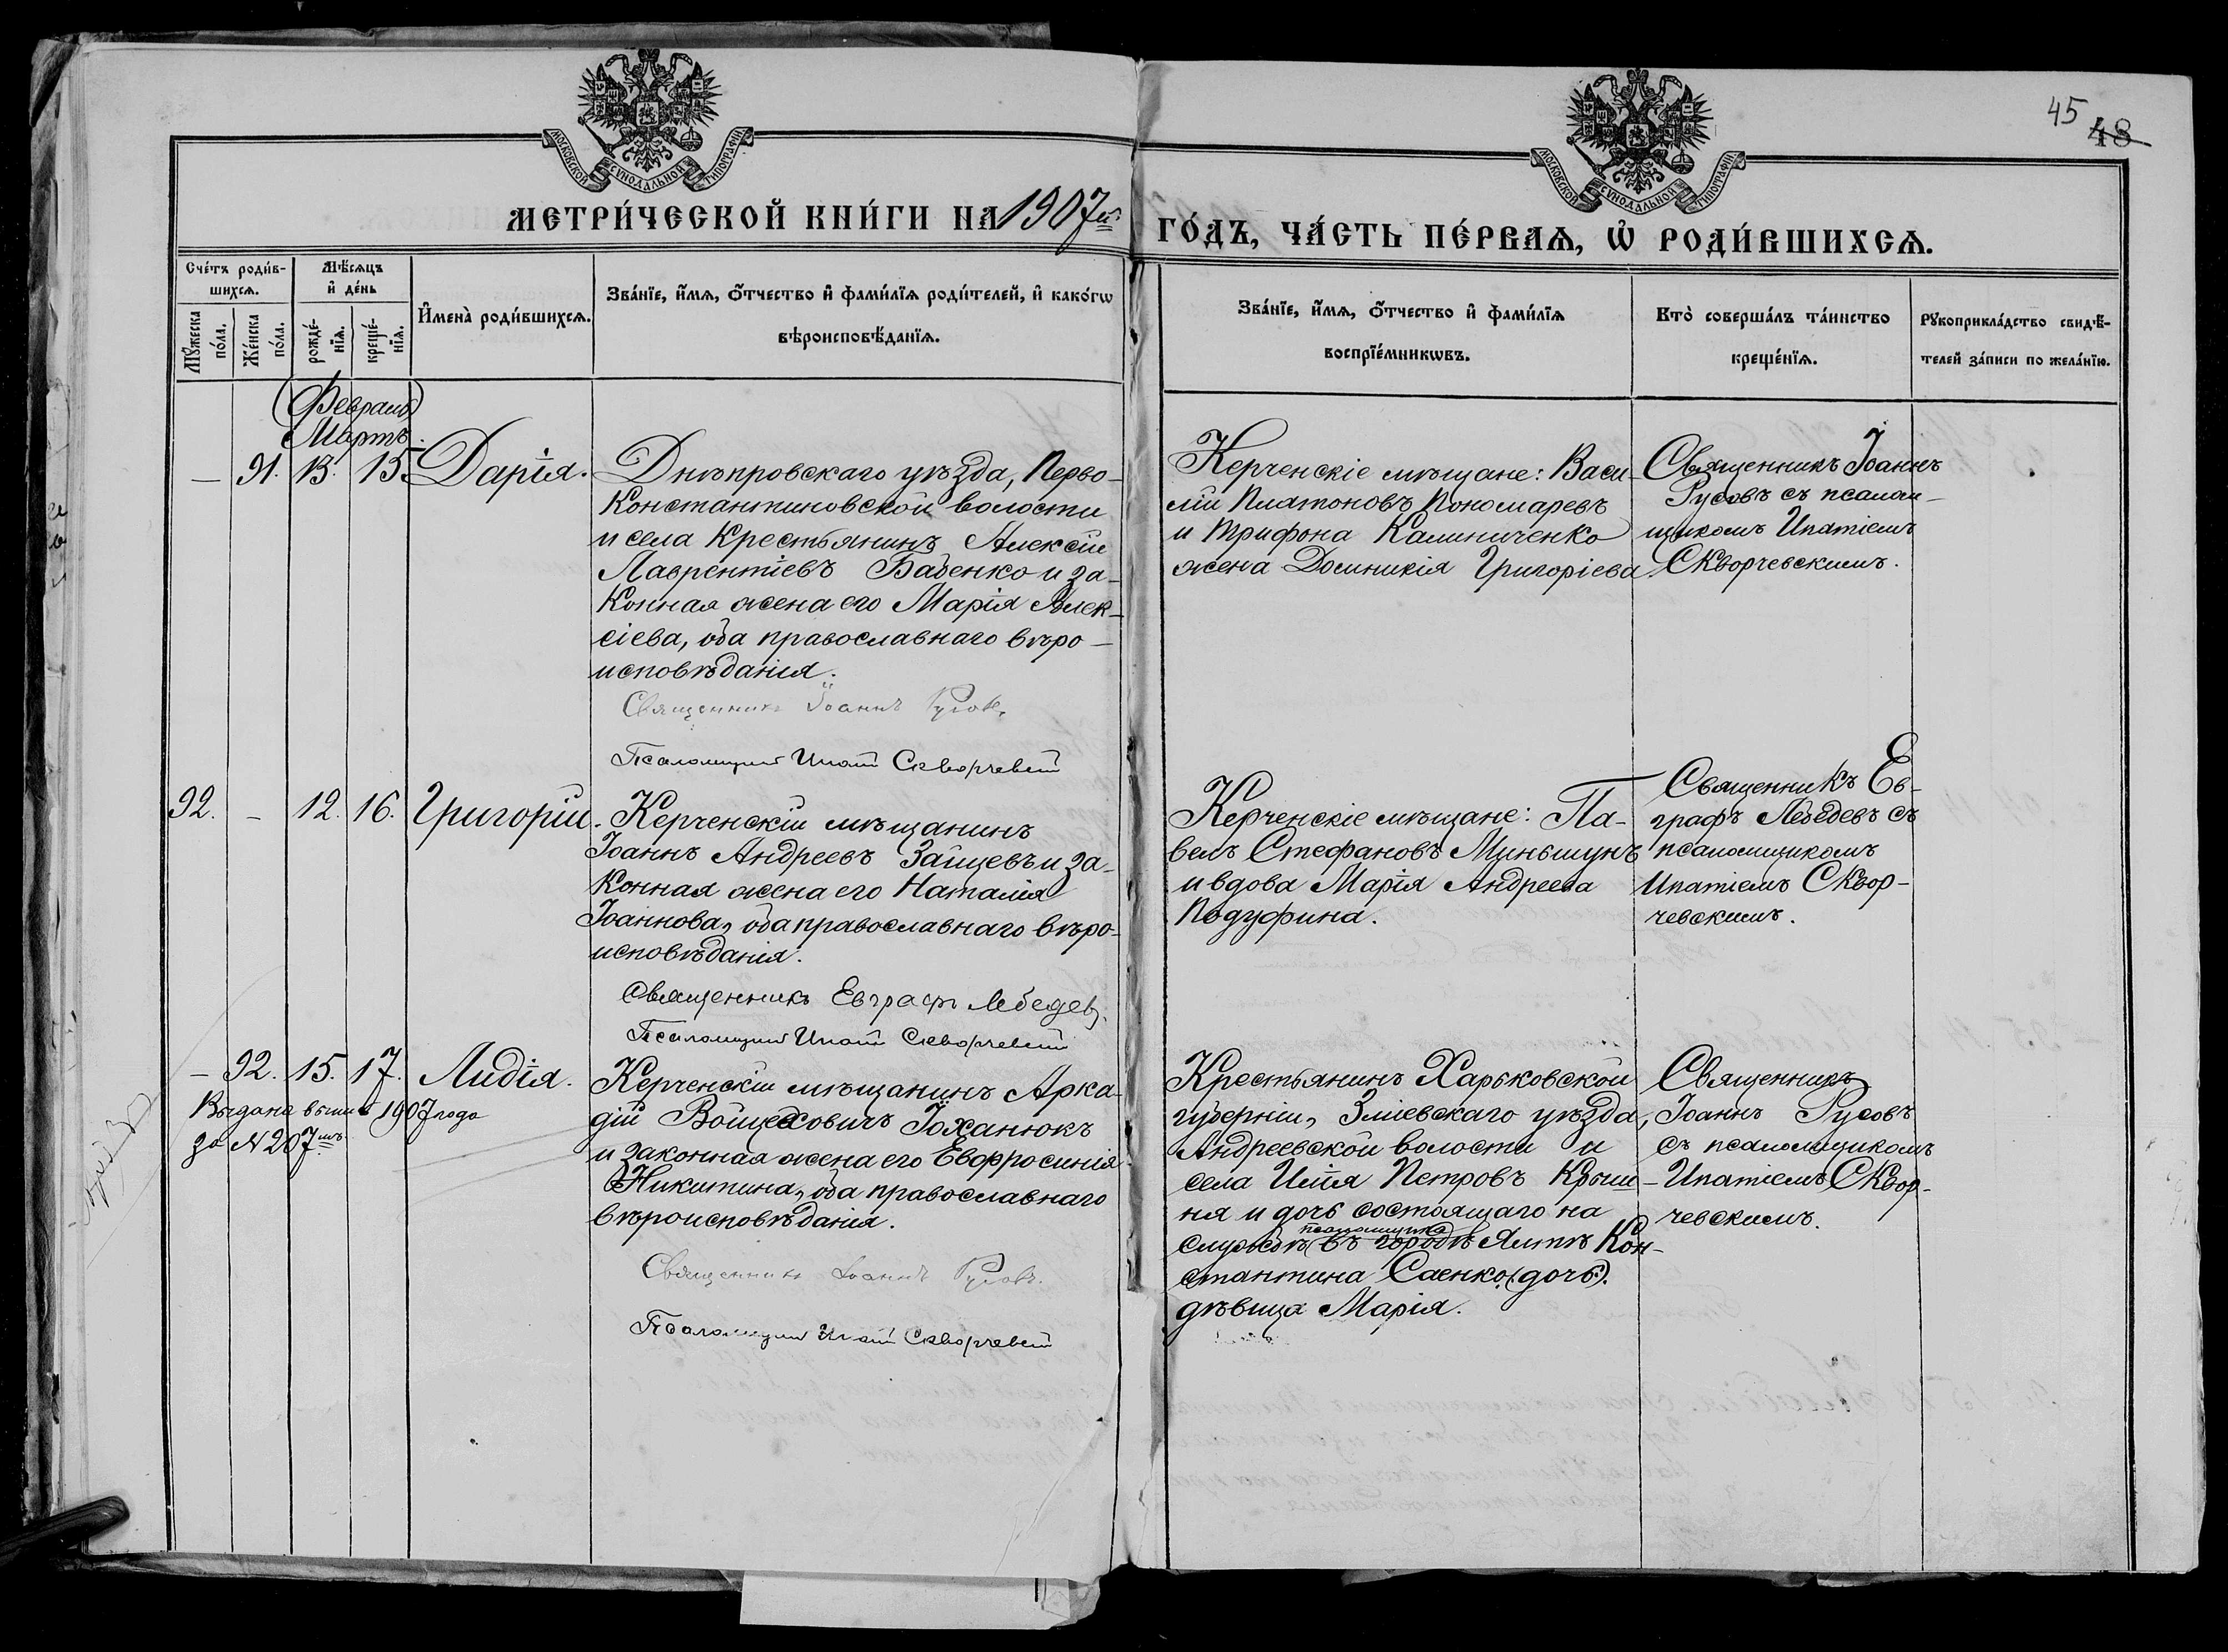 45 48
МОСКОВСКОЙ СУНОДАЛЬНОЙ ТИПОГРАФІИ
МОСКОВСКОЙ СУНОДАЛЬНОЙ ТИПОГРАФІИ
МЕТРИ́ЧЕСКОЙ КНИ́ГИ НА 1907й
ГО́ДЪ, ЧА́СТЬ ПЕ́РВАѦ, Ѡ҆ РОДИ́ВШИХСѦ.
Сче́тъ роди́в-
шихсѧ.
Мѣ́сѧцъ
и҆ де́нь
Мꙋ́жеска
по́ла.
Же́нска
по́ла.
рожде́-
нїѧ.
креще́-
нїѧ.
И҆мена̀ роди́вшихсѧ.
Зва́нїе, и҆́мѧ, ѻ҆́тчество и҆ фами́лїѧ роди́телей, и҆ како́гѡ
вѣроисповѣ́данїѧ.
Зва́нїе, и҆́мѧ, ѻ҆́тчество и҆ фами́лїѧ
воспрїе́мникѡвъ.
Кто̀ соверша́лъ та́инство
креще́нїѧ.
Рꙋкоприкла́дство свидѣ́-
телей за́писи по жела́нїю.
(Февраль)
Мартъ.
— 91. 13. 15. Дарія.
Днѣпровскаго уѣзда, Перво-
Константиновской волости
и села Крестьянинъ Алексій
Лаврентіевъ Бабенко и за-
конная жена его Марія Алек-
сіева, оба православнаго вѣро-
исповѣданія.
Священникъ Іоаннъ Русовъ
Псаломщикъ Ипатій Скворчевскій
Керченскіе мѣщане: Васи-
лій Платоновъ Пономаревъ
и Трифона Калиниченко
жена Домникія Григоріева
Священникъ Іоаннъ
Русовъ съ псалом-
щикомъ Ипатіемъ
Скворчевскимъ.
92. — 12. 16. Григорій.
Керченскій мѣщанинъ
Іоаннъ Андреевъ Зайцевъ и за-
конная жена его Наталія
Іоаннова, оба православнаго вѣро-
исповѣданія.
Священникъ Евграфъ Лебедевъ.
Псаломщикъ Ипатій Скворчевскій
Керченскіе мѣщане: Па-
велъ Стефановъ
и вдова Марія Андреева
Священникъ Ев-
графъ Лебедевъ съ
псаломщикомъ
Ипатіемъ Сквор-
чевскимъ.
— 92. 15. 17. Лидія.
Выдана выпись 1907 года
за № 207мъ.
Керченскій мѣщанинъ Арка-
дій Войцеховичъ Юханюкъ
и законная жена его Евфросинія
Никитина, оба православнаго
вѣроисповѣданія.
Священникъ Іоаннъ Русовъ.
Псаломщикъ Ипатій Скворчевскій
Крестьянинъ Харьковской
губерніи, Зміевскаго уѣзда,
Андреевской волости и
села Илія Петровъ
и дочь состоящаго на
псаломщика
службѣ въ городѣ Ялтѣ Кон-
стантина Саенко (дочь).
дѣвица Марія.
Священникъ
Іоаннъ Русовъ
съ псаломщикомъ
Ипатіемъ Сквор-
чевскимъ.